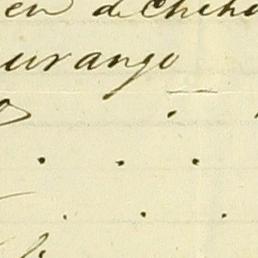 en de Chih
urango